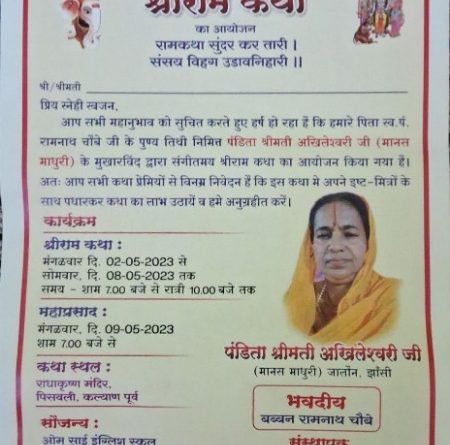 श्रीराम कथा
का आयोजन
रामकथा सुंदर कर तारी ।
संसय विहग उडावनिहारी ।।
श्री/श्रीमती
प्रिय स्नेही स्वजन,
आप सभी महानुभाव को सुचित करते हुए हर्ष हो रहा हैं कि हमारे पिता स्व.पं.
रामनाथ चौबे जी के पुण्य तिथी निमित्त पंडिता श्रीमती अखिलेश्वरी जी (मानस
माधुरी) के मुखारविंद द्वारा संगीतमय श्रीराम कथा का आयोजन किया गया हैं।
अतः आप सभी कथा प्रेमियों से विनम्र निवेदन हैं कि इस कथा मे अपने इष्ट-मित्रों के
साथ पधारकर कथा का लाभ उठायें व हमे अनुग्रहीत करें।
कार्यक्रम
श्रीराम कथा :
मंगळवार दि. 02-05-2023 से
सोमवार, दि. 08-05-2023 तक
समय - शाम 7.00 बजे से रात्री 10.00 बजे तक
महाप्रसाद :
मंगळवार, दि. 09-05-2023
शाम 7.00 बजे से
कथा स्थल :
राधाकृष्ण मंदिर,
पिसवली, कल्याण पूर्व
सौजन्य :
ओम साई इंग्लिश स्कुल
पंडिता श्रीमती अखिलेश्वरी जी
(मानस माधुरी) जालौन, झाँसी
भवदीय
बब्बन रामनाथ चौबे
संस्थापक